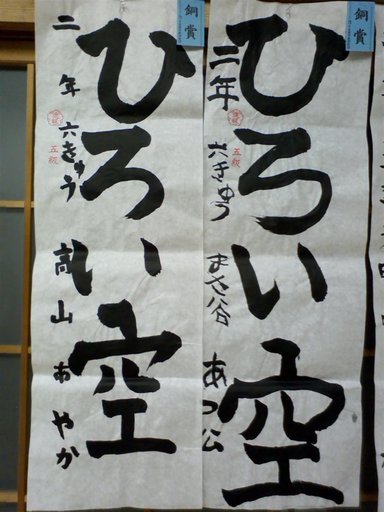 銅賞
ひろい空
三年 六きゅう まさ谷 あつ公
五級
銅賞
ひろい空
二年 六きゅう 高山あやか
五級